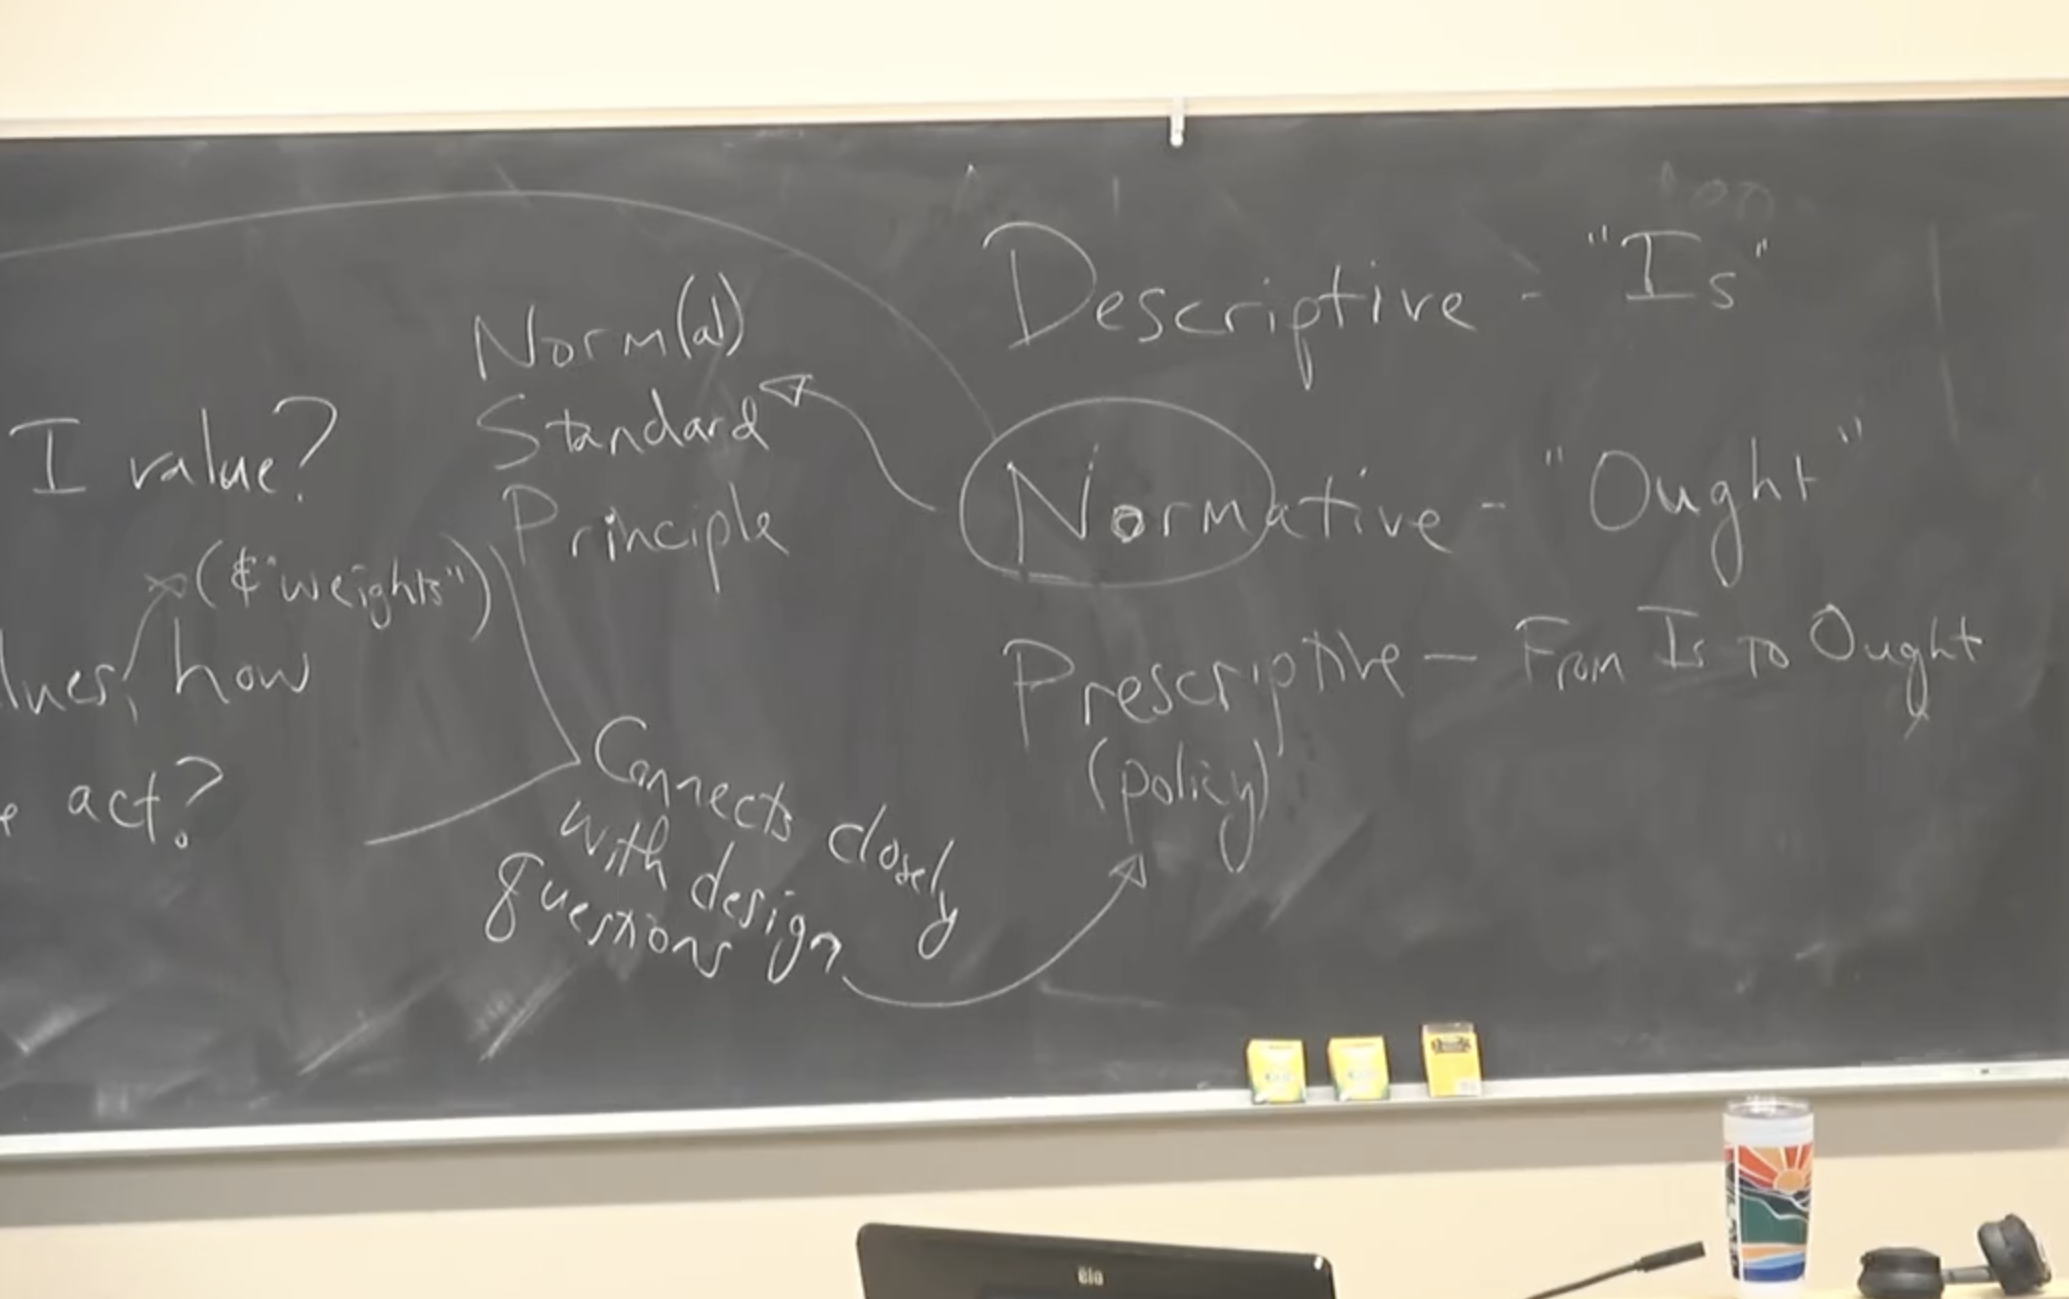 I value?
(& "weights")
how
act?
Norm(al)
Standard
Principle
Connects closely
with design
questions
Descriptive - "Is"
Normative - "Ought"
Prescriptive - From Is to Ought
(policy)
elo